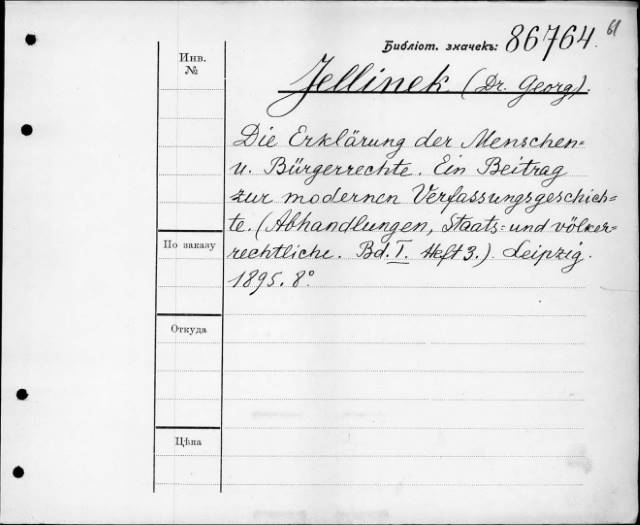 61
Библіот. значекъ: 86764.
Инв.
№
Jellinek. (Dr. Georg).
Die Erklärung der Menschen=
u. Bürgerrechte. Ein Beitrag
zur modernen Verfassungsgeschich=
te. (Abhandlungen, Staats= und völker=
rechtliche. Bd. I. Heft 3.) Leipzig.
1895. 8°.
По заказу
Откуда
Цѣна